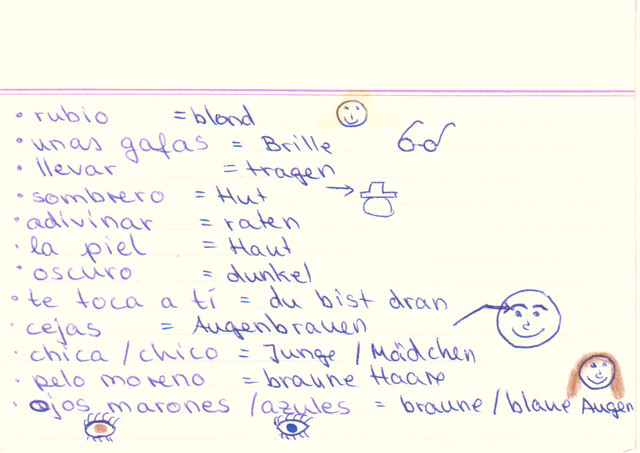 • rubio = blond
• unas gafas = Brille
• llevar = tragen
• sombrero = Hut
• adivinar = raten
• la piel = Haut
• oscuro = dunkel
• te toca a tí = du bist dran
• cejas = Augenbrauen
• chica / chico = Junge / Mädchen
• pelo moreno = braune Haare
• Ojos marones / azules = braune / blaue Augen